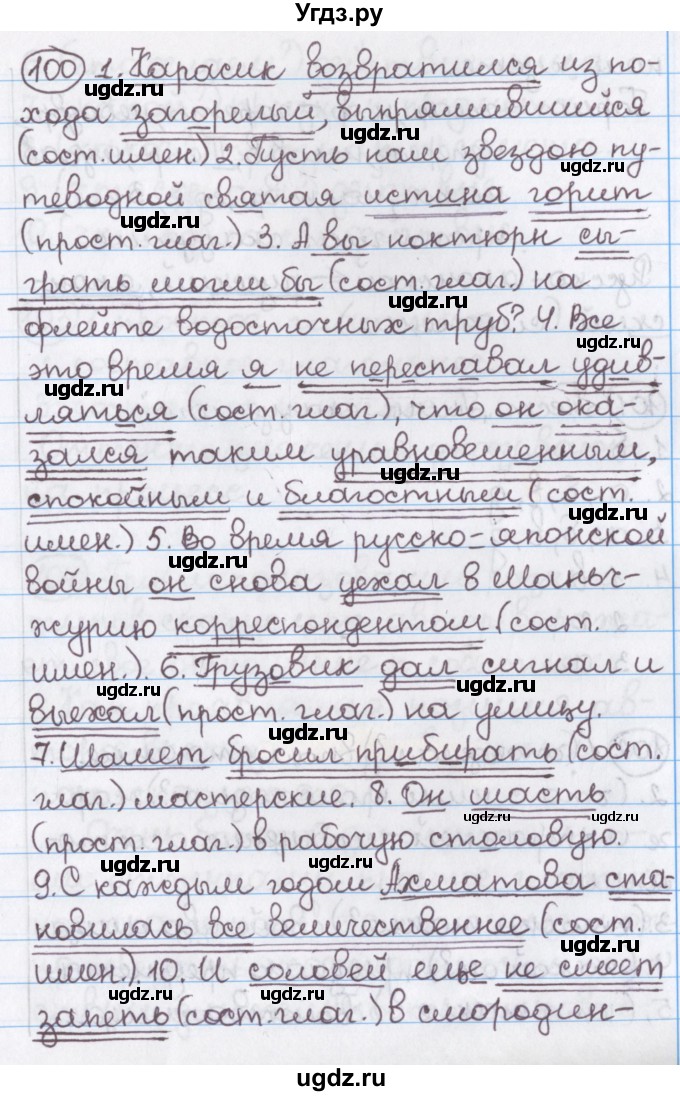 Угдз.ру
100 1. Карасик возвратился из по-
хода загорелый, выпрямившийся
(сост. имен.) 2. Пусть нам звездою пу-
теводной святая истина горит
(прост. глаг.) 3. А вы ноктюрн сы-
грать могли бы (сост. глаг.) на
флейте водосточных труб? 4. Все
это время я не переставал удив-
ляться (сост. глаг.), что он ока-
зался таким уравновешенным,
спокойным и благостным (сост.
имен.) 5. Во время русско-японской
войны он снова уехал в Мань-
чжурию корреспондентом (сост.
имен.). 6. Грузовик дал сигнал и
выехал (прост. глаг.) на улицу.
7. Шамет бросил прибирать (сост.
глаг.) мастерские. 8. Он шасть
(прост. глаг.) в рабочую столовую.
9. С каждым годом Ахматова ста-
новилась все величественнее (сост.
имен.). 10. И соловей еще не смеет
запеть (сост. глаг.) в смородин-
ugdz.ru